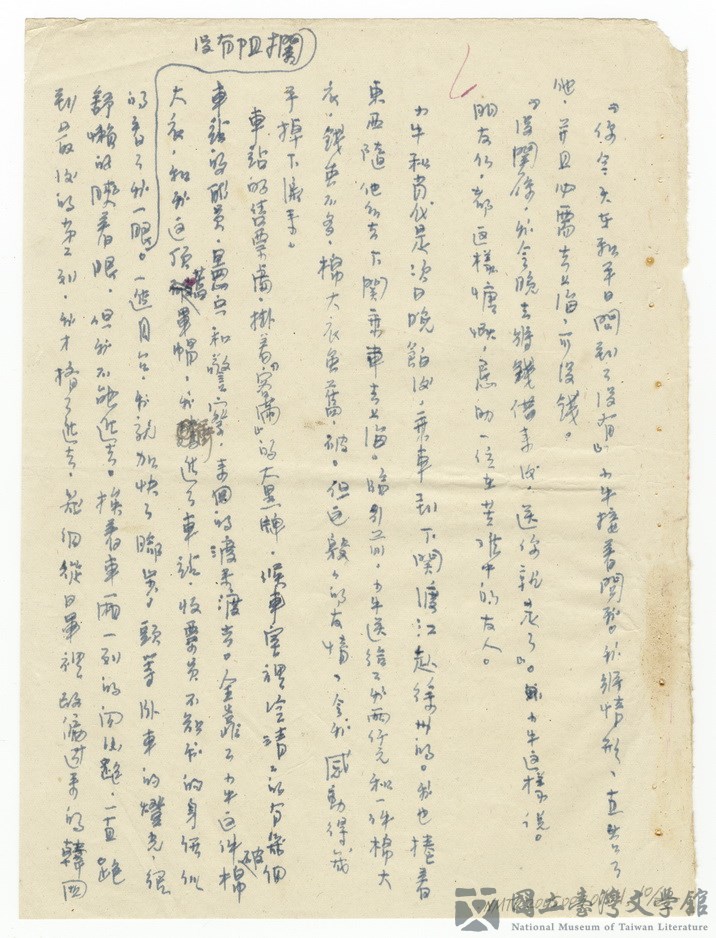 沒有阻攔
「你今天在和平日問到了沒有」小牛接着問我。我將情形、直告了
他,并且必需去上海,可沒錢。
「沒關係,我今晚去將錢借來後,送你就是了」。小牛這樣說。
朋友們,都這樣慷慨,忠助一位在苦難中的友人。
小牛和黃我是次日晚飯後,乘車到下關渡江赴徐州的。我也捲着
東西隨他們去下關乘車去上海。臨別前,小牛送給了我兩仟元和一件棉大
衣,錢雖不多,棉大衣亦舊,破。但這殷々的友情、令我感動得幾
乎掉下淚來。
車站的售票處,掛着「客滿」的大黑牌,候車室裡冷清清的有幾個
車站的職員,憲兵和警察,來回的渡來渡去。全靠了小牛這件破棉
大衣,和我這頂舊軍帽,我進了車站,收票員不知我的身份似
的看了我一眼。一進月台,我就加快了腳步。頭等臥車的燈光,很
舒懶的䀹着眼,但我不能進去。挨着車廂一列的閃閃越,一直跑
到最後的第二列,我才擠了進去,是個從日軍裡改編過來的韓國
國立臺灣文學館
National Museum of Taiwan Literature